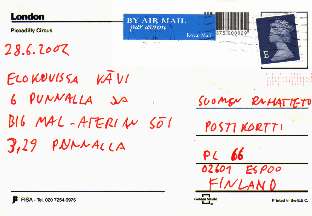 London
Piccadilly Circus
BY AIR MAIL
par avion
Royal Mail
E
28.6.2002
ELOKUVISSA KÄVI
6 PUNNALLA JA
BIG MAL-ATERIAN SÖI
3,29 PUNNALLA
SUOMEN RAHATIETO
POSTIKORTTI
PL 66
02601 ESPOO
FINLAND
FISA - Tel. 020 7254 0976
Printed in the E.E.C.